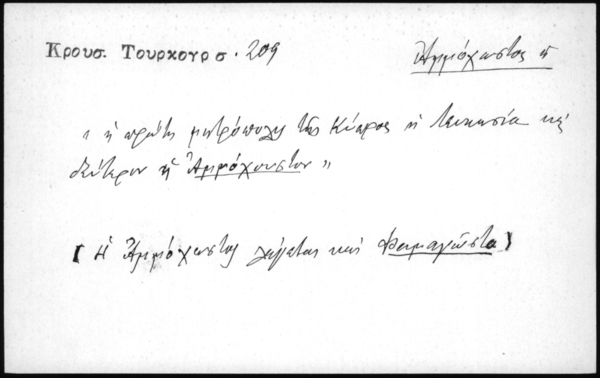 Κρουσ. Τουρκογρ σ. 209
Ἀμμόχωστος ἡ
" ἡ πρώτη μητρόπολις τῆς Κύπρος ἡ Λευκωσία καὶ
δεύτερον ἡ Ἀμμόχουστον "
[ ἡ Ἀμμόχωστος λέγεται καὶ Φαμαγοῦστα ]